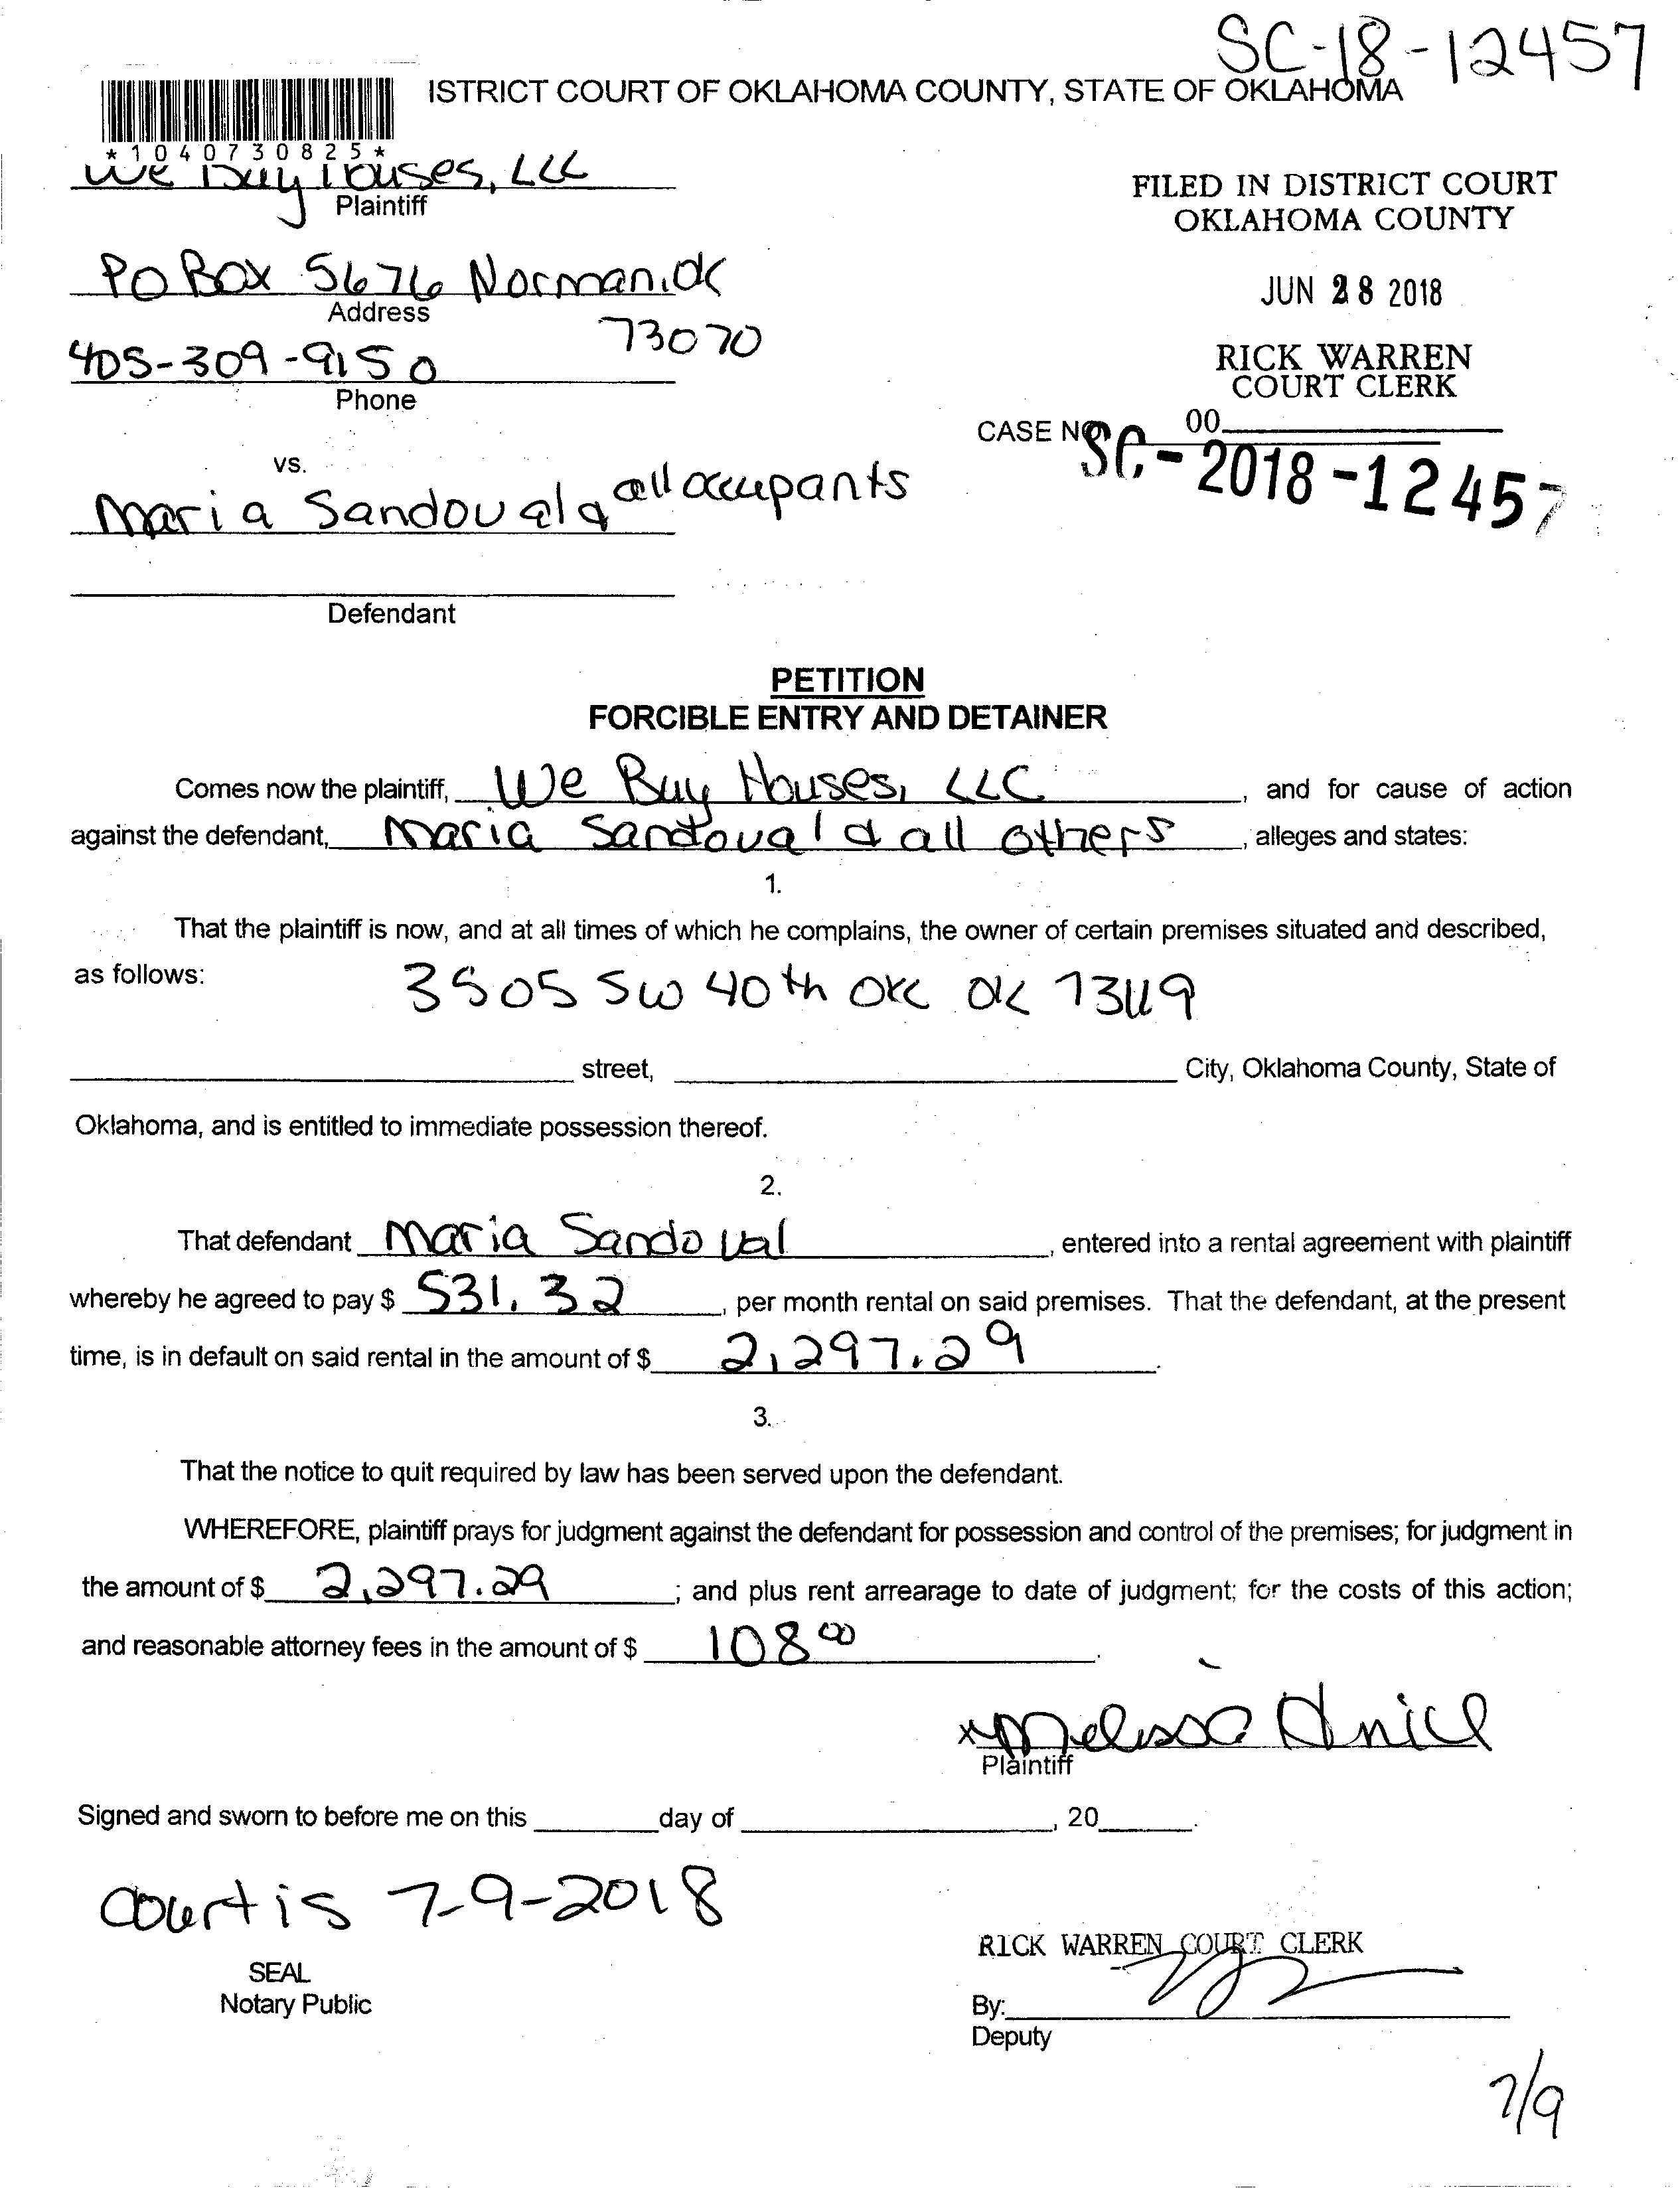 SC-18-12457
ISTRICT COURT OF OKLAHOMA COUNTY, STATE OF OKLAHOMA
*1040730825*
We Buy Houses, LLC
Plaintiff
FILED IN DISTRICT COURT
OKLAHOMA COUNTY
PO Box 5676 Norman, OK
Address
73070
JUN 28 2018
405-309-9150
Phone
RICK WARREN
COURT CLERK
CASE NO. 00
SC-2018-12457
vs.
Maria Sandoval & all occupants
Defendant
PETITION
FORCIBLE ENTRY AND DETAINER
Comes now the plaintiff, We Buy Houses, LLC, and for cause of action
against the defendant, Maria Sandoval & all others, alleges and states:
1.
That the plaintiff is now, and at all times of which he complains, the owner of certain premises situated and described,
as follows: 3505 SW 40th OKC OK 73119
street, City, Oklahoma County, State of
Oklahoma, and is entitled to immediate possession thereof.
2.
That defendant Maria Sandoval, entered into a rental agreement with plaintiff
whereby he agreed to pay $ 531.32, per month rental on said premises. That the defendant, at the present
time, is in default on said rental in the amount of $ 2,297.29.
3.
That the notice to quit required by law has been served upon the defendant.
WHEREFORE, plaintiff prays for judgment against the defendant for possession and control of the premises; for judgment in
the amount of $ 2,297.29; and plus rent arrearage to date of judgment; for the costs of this action;
and reasonable attorney fees in the amount of $ 108 00.
x Melissa
Plaintiff
Signed and sworn to before me on this day of , 20.
Court is 7-9-2018
SEAL
Notary Public
RICK WARREN COURT CLERK
By:
Deputy
7/9